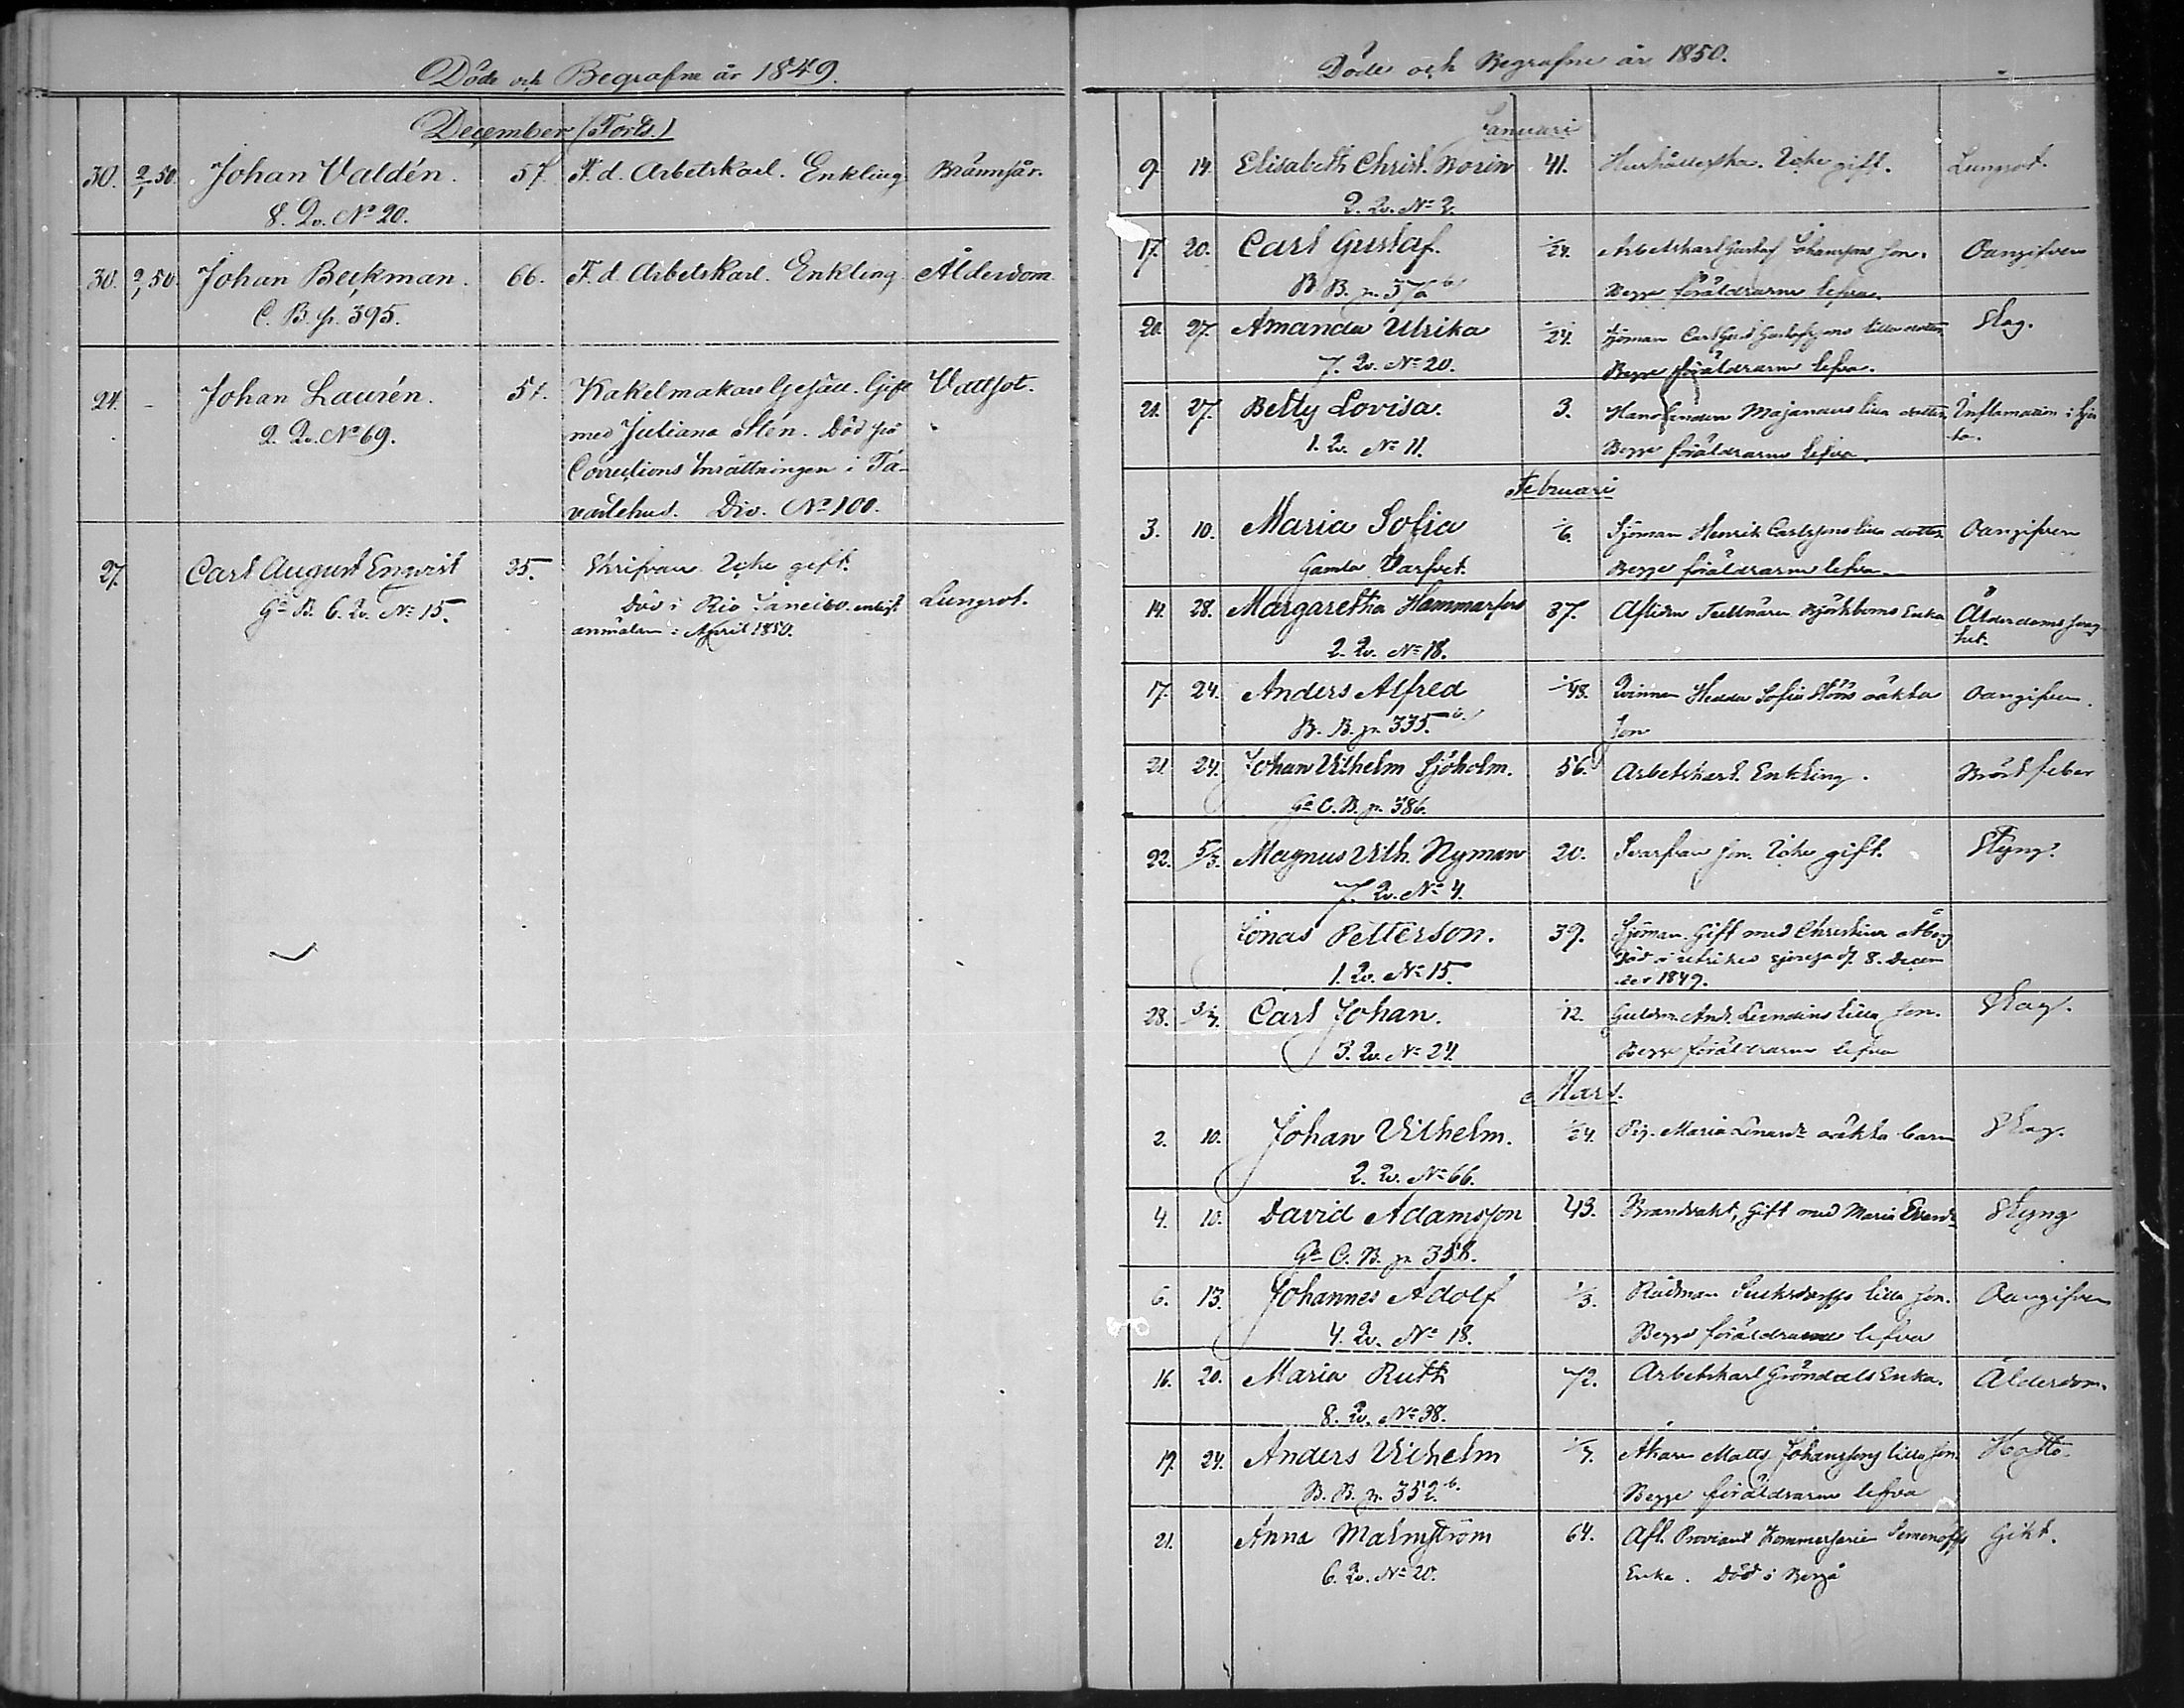 Döde och Begrafne år 1849.
December (Forts.)
30. 2/1 50 Johan Valdén. 57. F. d. Arbetskarl. Enkling Brännsår.
8. Qv. No 20.
30. 2/1 50 Johan Beckman. 66. F. d. Arbetskarl. Enkling Ålderdom
C. B. p. 395.
24. - Johan Laurén. 51. Kakelmakare Gesäll. Gift Vattsot.
2. Qv. No 69. med Juliana Slén. Död på
Corrections Inrättningen i Ta-
vastehus. Div. No 100.
27. Carl August Enqvist 25. Skrifvare Icke gift.
Ga B. 6. Qv. No 15. Död i Rio Janeiro enligt Lungsot.
anmälan i April 1850.
Döde och Begrafne år 1850.
Januari
9. 14. Elisabeth Christ. Borin 41. Hushållerska. Icke gift. Lungsot.
2. Qv. No 2.
17. 20. Carl Gustaf. 1/24. Arbetskarl Gustaf Johanssons son. Oangifven
B. B. p. 376 b Begge föräldrarne lefva.
20. 27. Amanda Ulrika 1/24. Sjöman Carl Gust Gustafssons lilla dotter. Slag.
7. Qv. No 20. Begge föräldrarne lefva.
21. 27. Betty Lovisa. 3. Majanders lilla dotter Inflamation i
1. Qv. No 11. Begge föräldrarne lefva.
Februari
3. 10. Maria Sofia 1/6. Sjöman Henrik Carlssons lilla dotter Oangifven
Gamla Varfvet. Begge föräldrarne lefva.
14. 28. Margaretha Hammarfors 87. Aflidne Björkboms Enka Ålderdoms svag-
2. Qv. No 18. het.
17. 24. Anders Alfred 1/48. Qvinnan Hedda Sofia oäkta Oangifven.
B. B. p. 335. Son
21. 24. Johan Vilhelm Sjöholm. 56. Arbetskarl. Enkling. Bröstfeber
Ga C. B. p. 386.
22. 5/3. Magnus Vilh. Nyman 20. Svarfvare son. Icke gift. Styng.
7. Qv. No 4.
Jonas Petterson. 39. Sjöman. Gift med Christina Åberg
1. Qv. No 15 Död å utrikes sjöresa d. 8. Decem
ber 1849.
28. Carl Johan. 1/12. Guldsm. And. Lundins lilla son. Slag.
3. Qv. No 24. Begge föräldrarne lefva
Mars.
2. 10. Johan Vilhelm. 1/24. Pig. Maria oäkta barn Slag.
2. Qv. No 66.
4. 10. David Adamsson 43. Brandvakt, Gift med Maria Styng
Ga C. B. p. 358.
6. 13. Johannes Adolf 1/3. Rådman lilla son. Oangifven
4. Qv. No 18. Begge föräldrarne lefva
16. 20. Maria Ruth 72. Arbetskarl Gröndals Enka. Ålderdom.
8. Qv. No 38.
19. 24. Anders Vilhelm Åkare Matts Johanssons lilla son. Hosta.
B. B. p. 352. b. Begge föräldrarne lefva
21. Anna Malmström 64. Afl. Proviant Kommissarie Semenoffs Gikt.
6. Qv. No 20. Enka. Död i Borgå